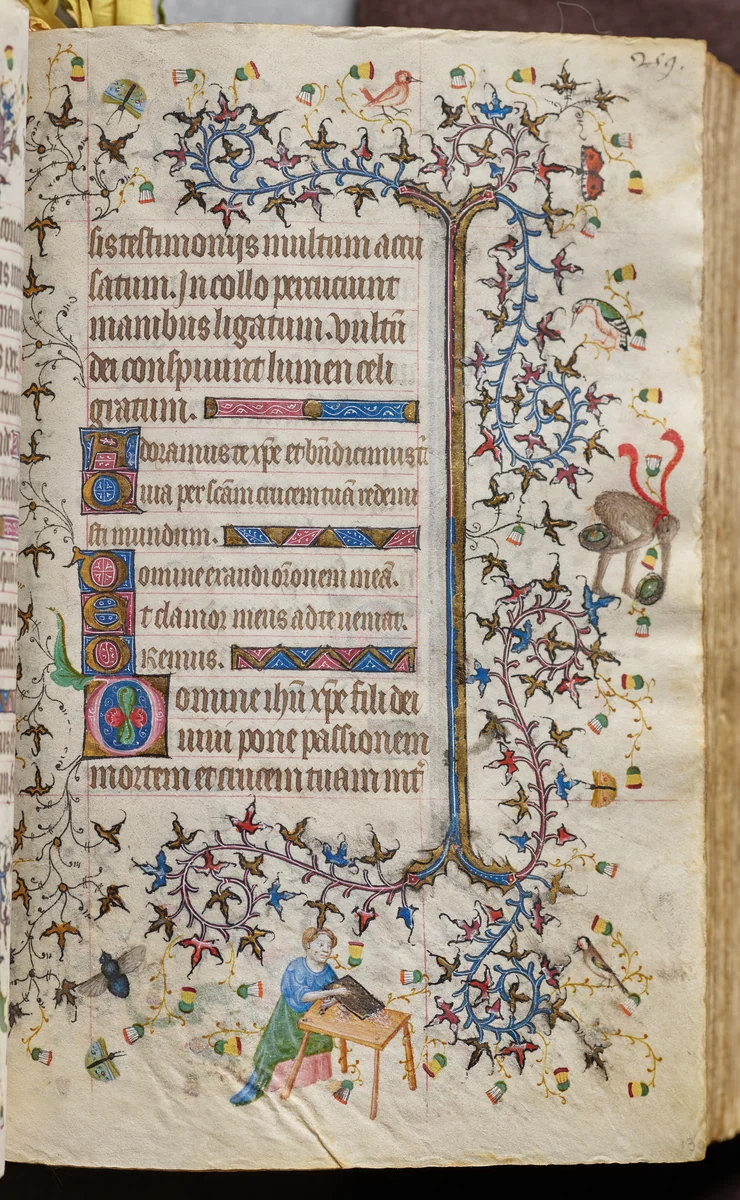 259.
sis testimoniis multum accu
satum. In collo percuciunt
manibus ligatum. Vultū
dei conspuunt lumen celi
gratum.
Adoramus te xp̄e et bn̄dicimus t̄
Quia per scām crucem tuā redemi
sti mundum.
Domine exaudi or̄onem meā.
Et clamor meus ad te veniat.
Oremus.
Domine ihū xp̄e fili dei
uiui pone passionem
mortem et crucem tuam int̄